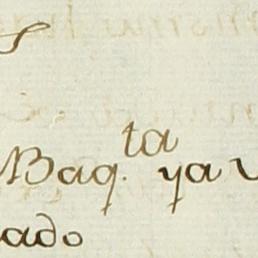 Baq.ta ya
ado